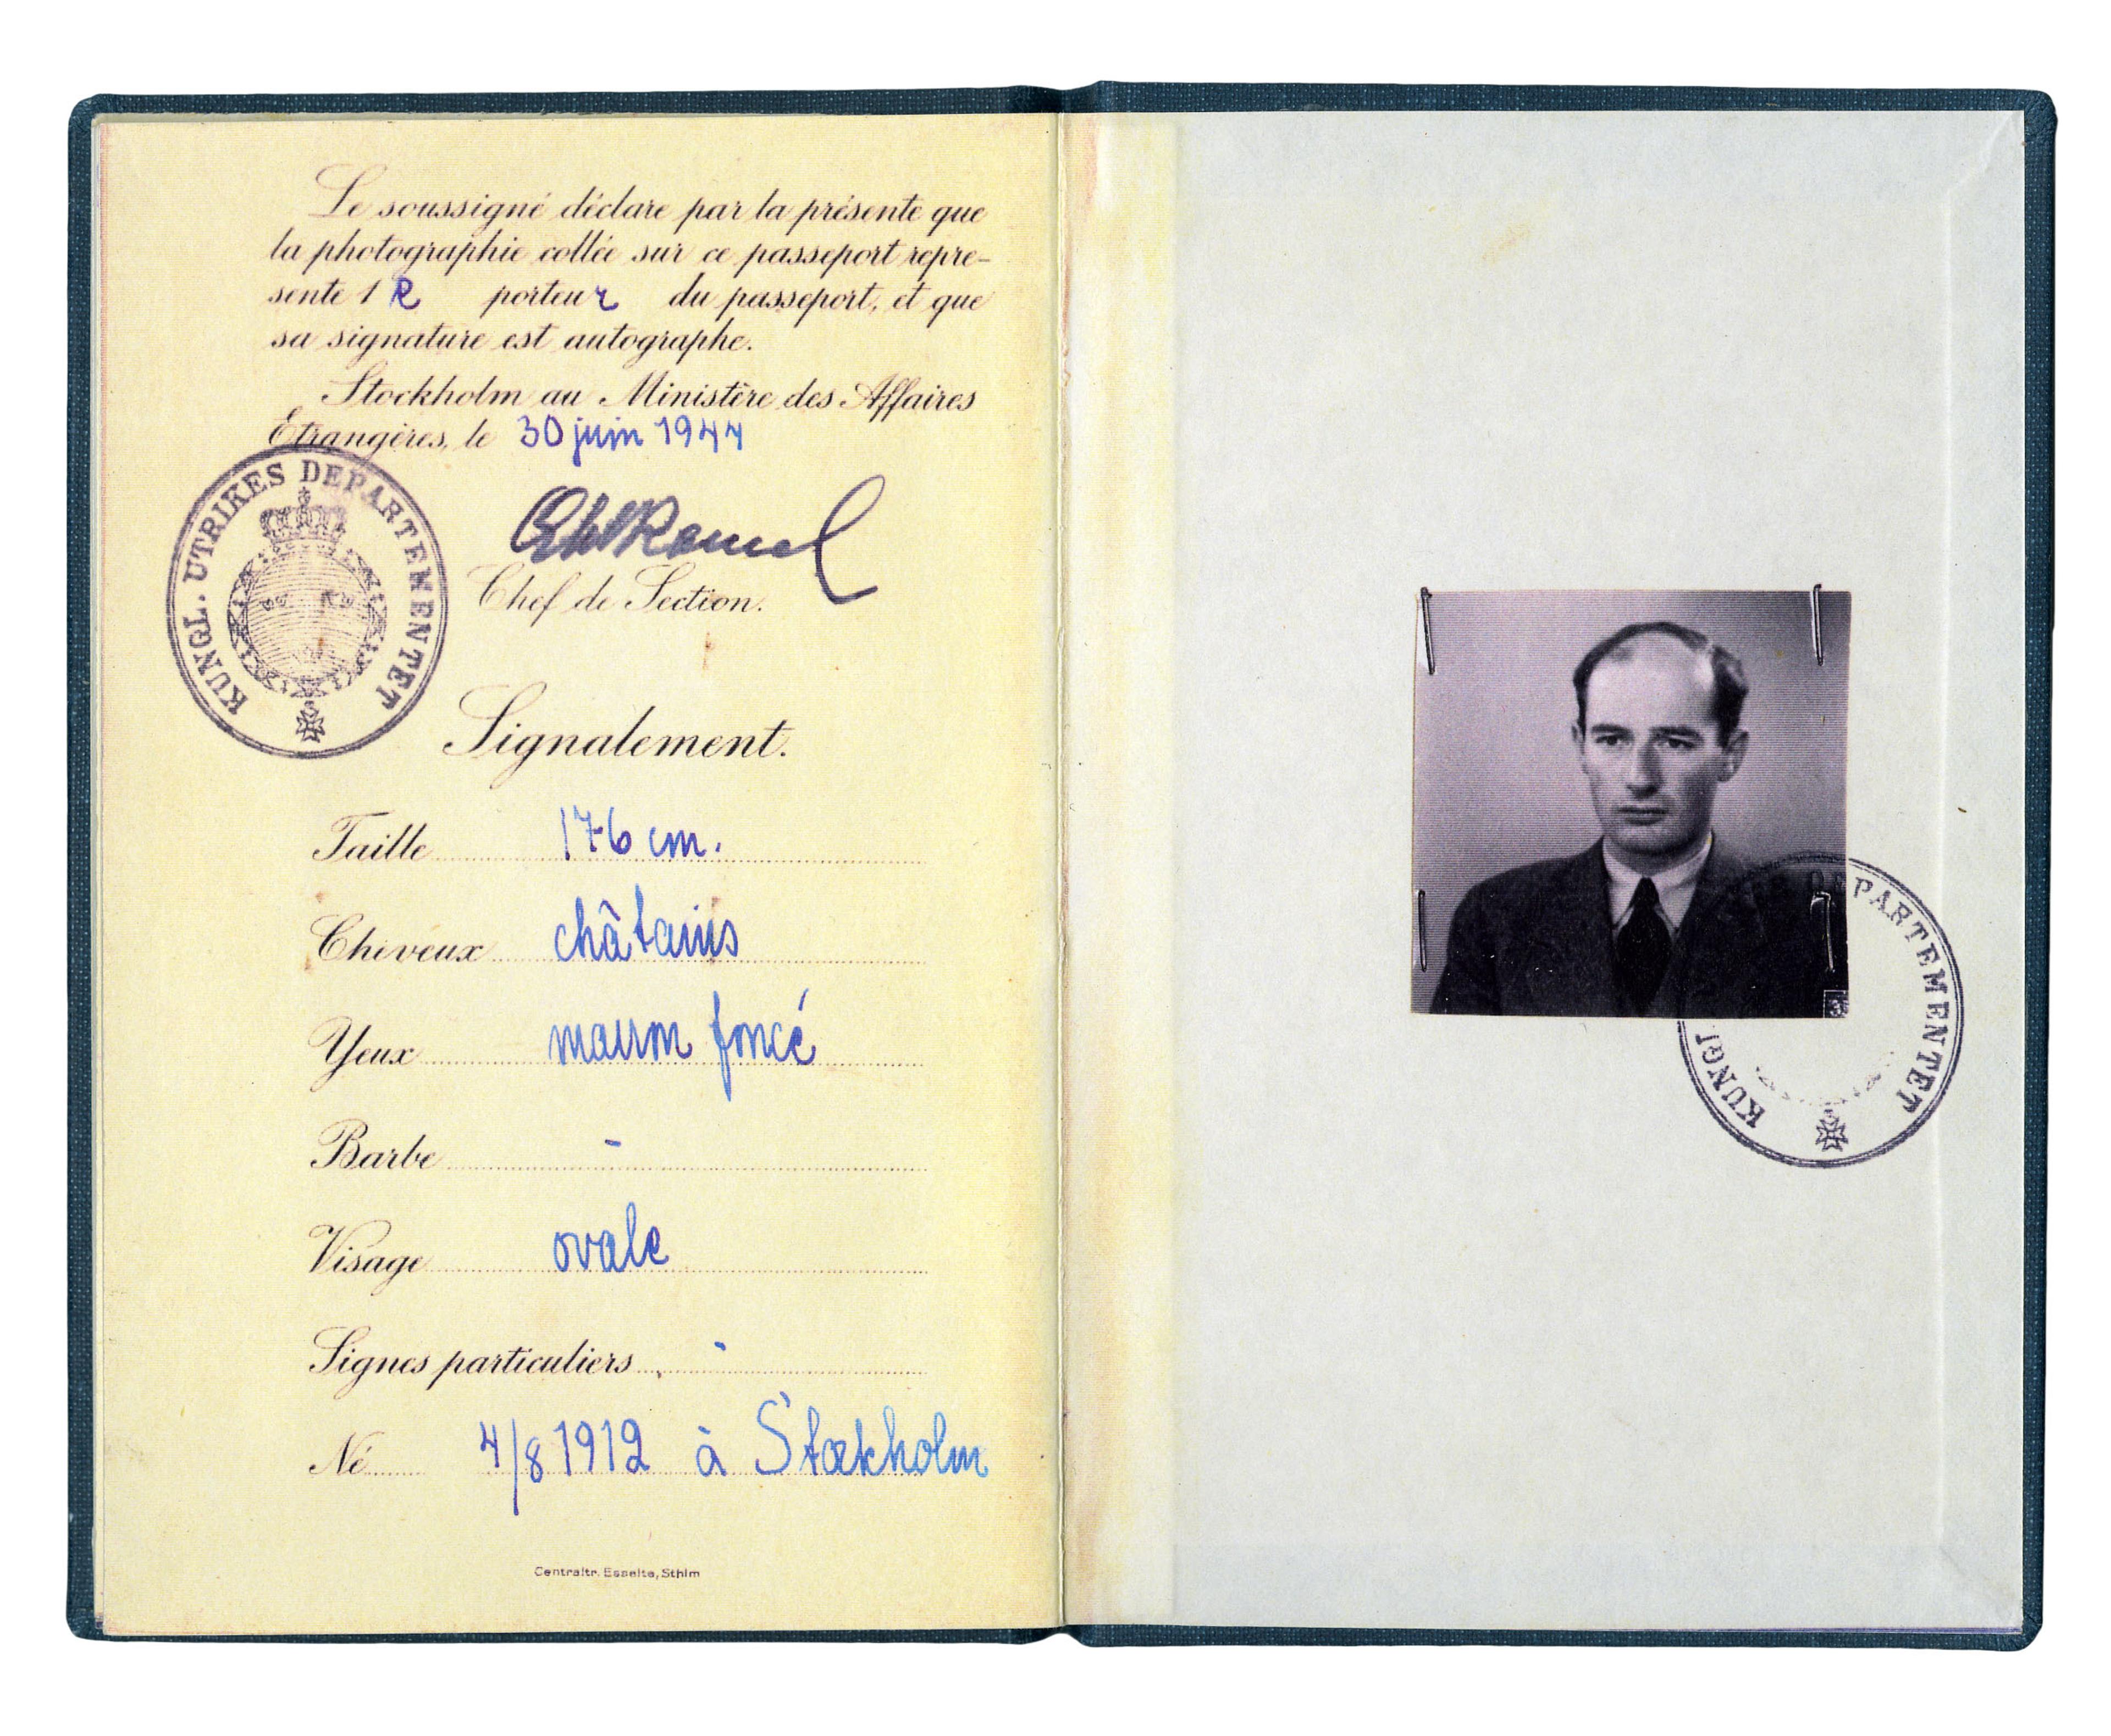 Le soussigné déclare par la présente que
la photographie collée sur ce passeport repré-
sente l e porteur du passeport, et que
sa signature est autographe.
Stockholm au Ministère des Affaires
Étrangères, le 30 juin 1944
KUNGL. UTRIKES DEPARTEMENTET
Chef de Section.
Signalement.
Taille 176 cm.
Cheveux châtains
Yeux marron foncé
Barbe -
Visage ovale
Signes particuliers -
Né 4/8 1912 à Stockholm
Centraltr. Esselte, Sthlm
KUNGL DEPARTEMENTET